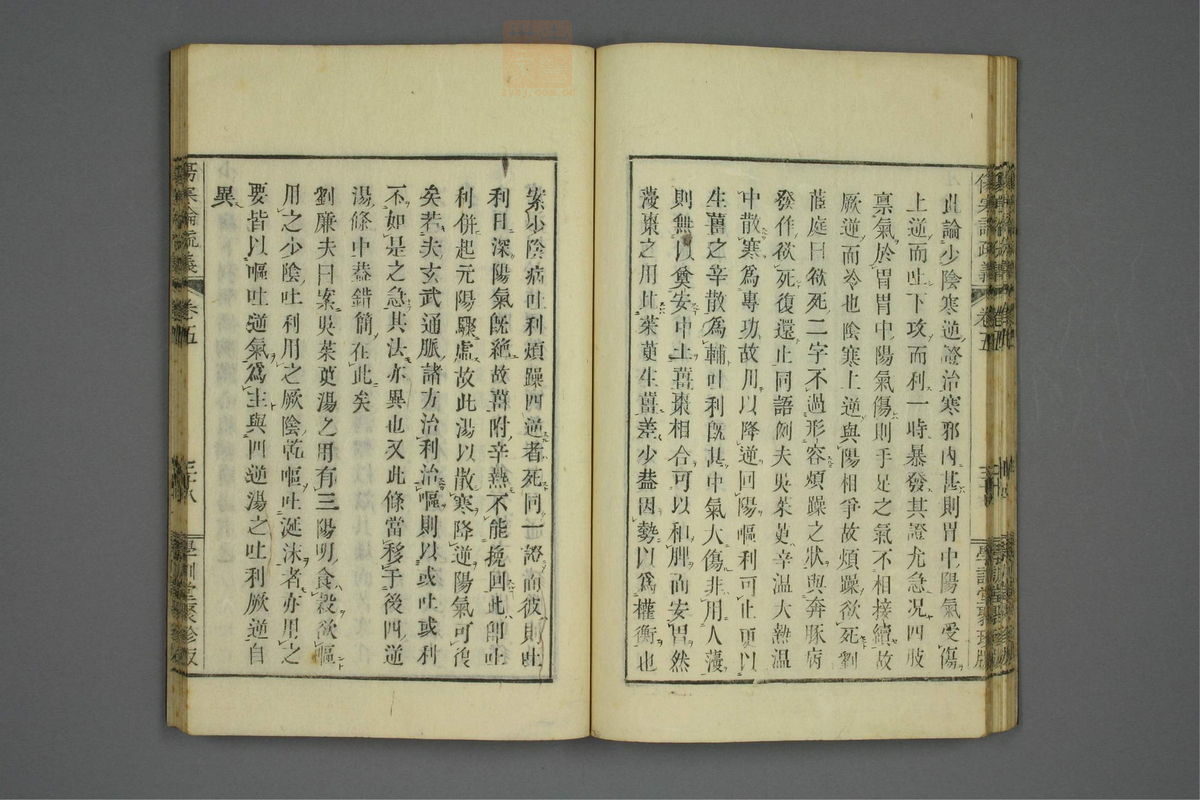 此論少陰寒逆證治寒邪內甚則胃中陽氣受傷
上逆而吐下攻而利一時暴發其證尤急况四肢
稟氣於胃胃中陽氣傷則手足之氣不相接續故
厥逆而冷也陰寒上逆與陽相爭故煩躁欲死劉
茝庭曰欲死二字不過形容煩躁之狀與奔豚病
發作欲死復還止同語例夫吳茱萸辛温大熱温
中散寒爲專功故用以降逆回陽嘔利可止更以
生薑之辛散爲輔吐利旣甚中氣大傷非用人薓
則無以奠安中土薑棗相合可以和脾而安胃然
薓棗之用比茱萸生薑差少葢因勢以爲權衡也
傷寒論疏義 卷五 學訓堂聚珍版
案少陰病吐利煩躁四逆者死同一證而彼則吐
利日深陽氣旣絶故薑附辛熱不能挽回此卽吐
利併起元陽驟虛故此湯以散寒降逆陽氣可復
矣若夫玄武通脈諸方治利治嘔則以或吐或利
不如是之急其法亦異也又此條當移于後四逆
湯條中葢錯簡在此矣
劉廉夫曰案吳茱萸湯之用有三陽明食穀欲嘔
用之少陰吐利用之厥陰乾嘔吐涎沫者亦用之
要皆以嘔吐逆氣爲主與四逆湯之吐利厥逆自
異
傷寒論疏義 卷五 三十八 學訓堂聚珍版